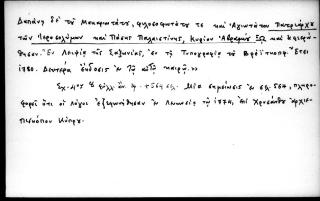 Δαπάνῃ δὲ τοῦ Μακαριωτάτου, φιλοσοφωτάτου τε καὶ Ἁγιωτάτου Πατριάρχου
τῶν Ἱεροσολύμων καὶ πάσης Παλαιστίνης, Κυρίου Ἀβραμίου καὶ
Ἐν Λειψίᾳ τῆς Σαξωνίας, ἐν τῇ Τυπογραφίᾳ τοῦ Βρεϊτκόπφ. Ἔτει
1780. Δευτέρα ἔκδοσις ἐν τῷ αὐτῷ καιρῷ.»
Σχ. 4ον Μία σημείωσις ἐν σελ. 567, πληρο-
φορεῖ ὅτι οἱ λόγοι ἐν Λευκωσίᾳ τῷ 1774, ἐπὶ Χρυσάνθου ἀρχιε-
πισκόπου Κύπρου.